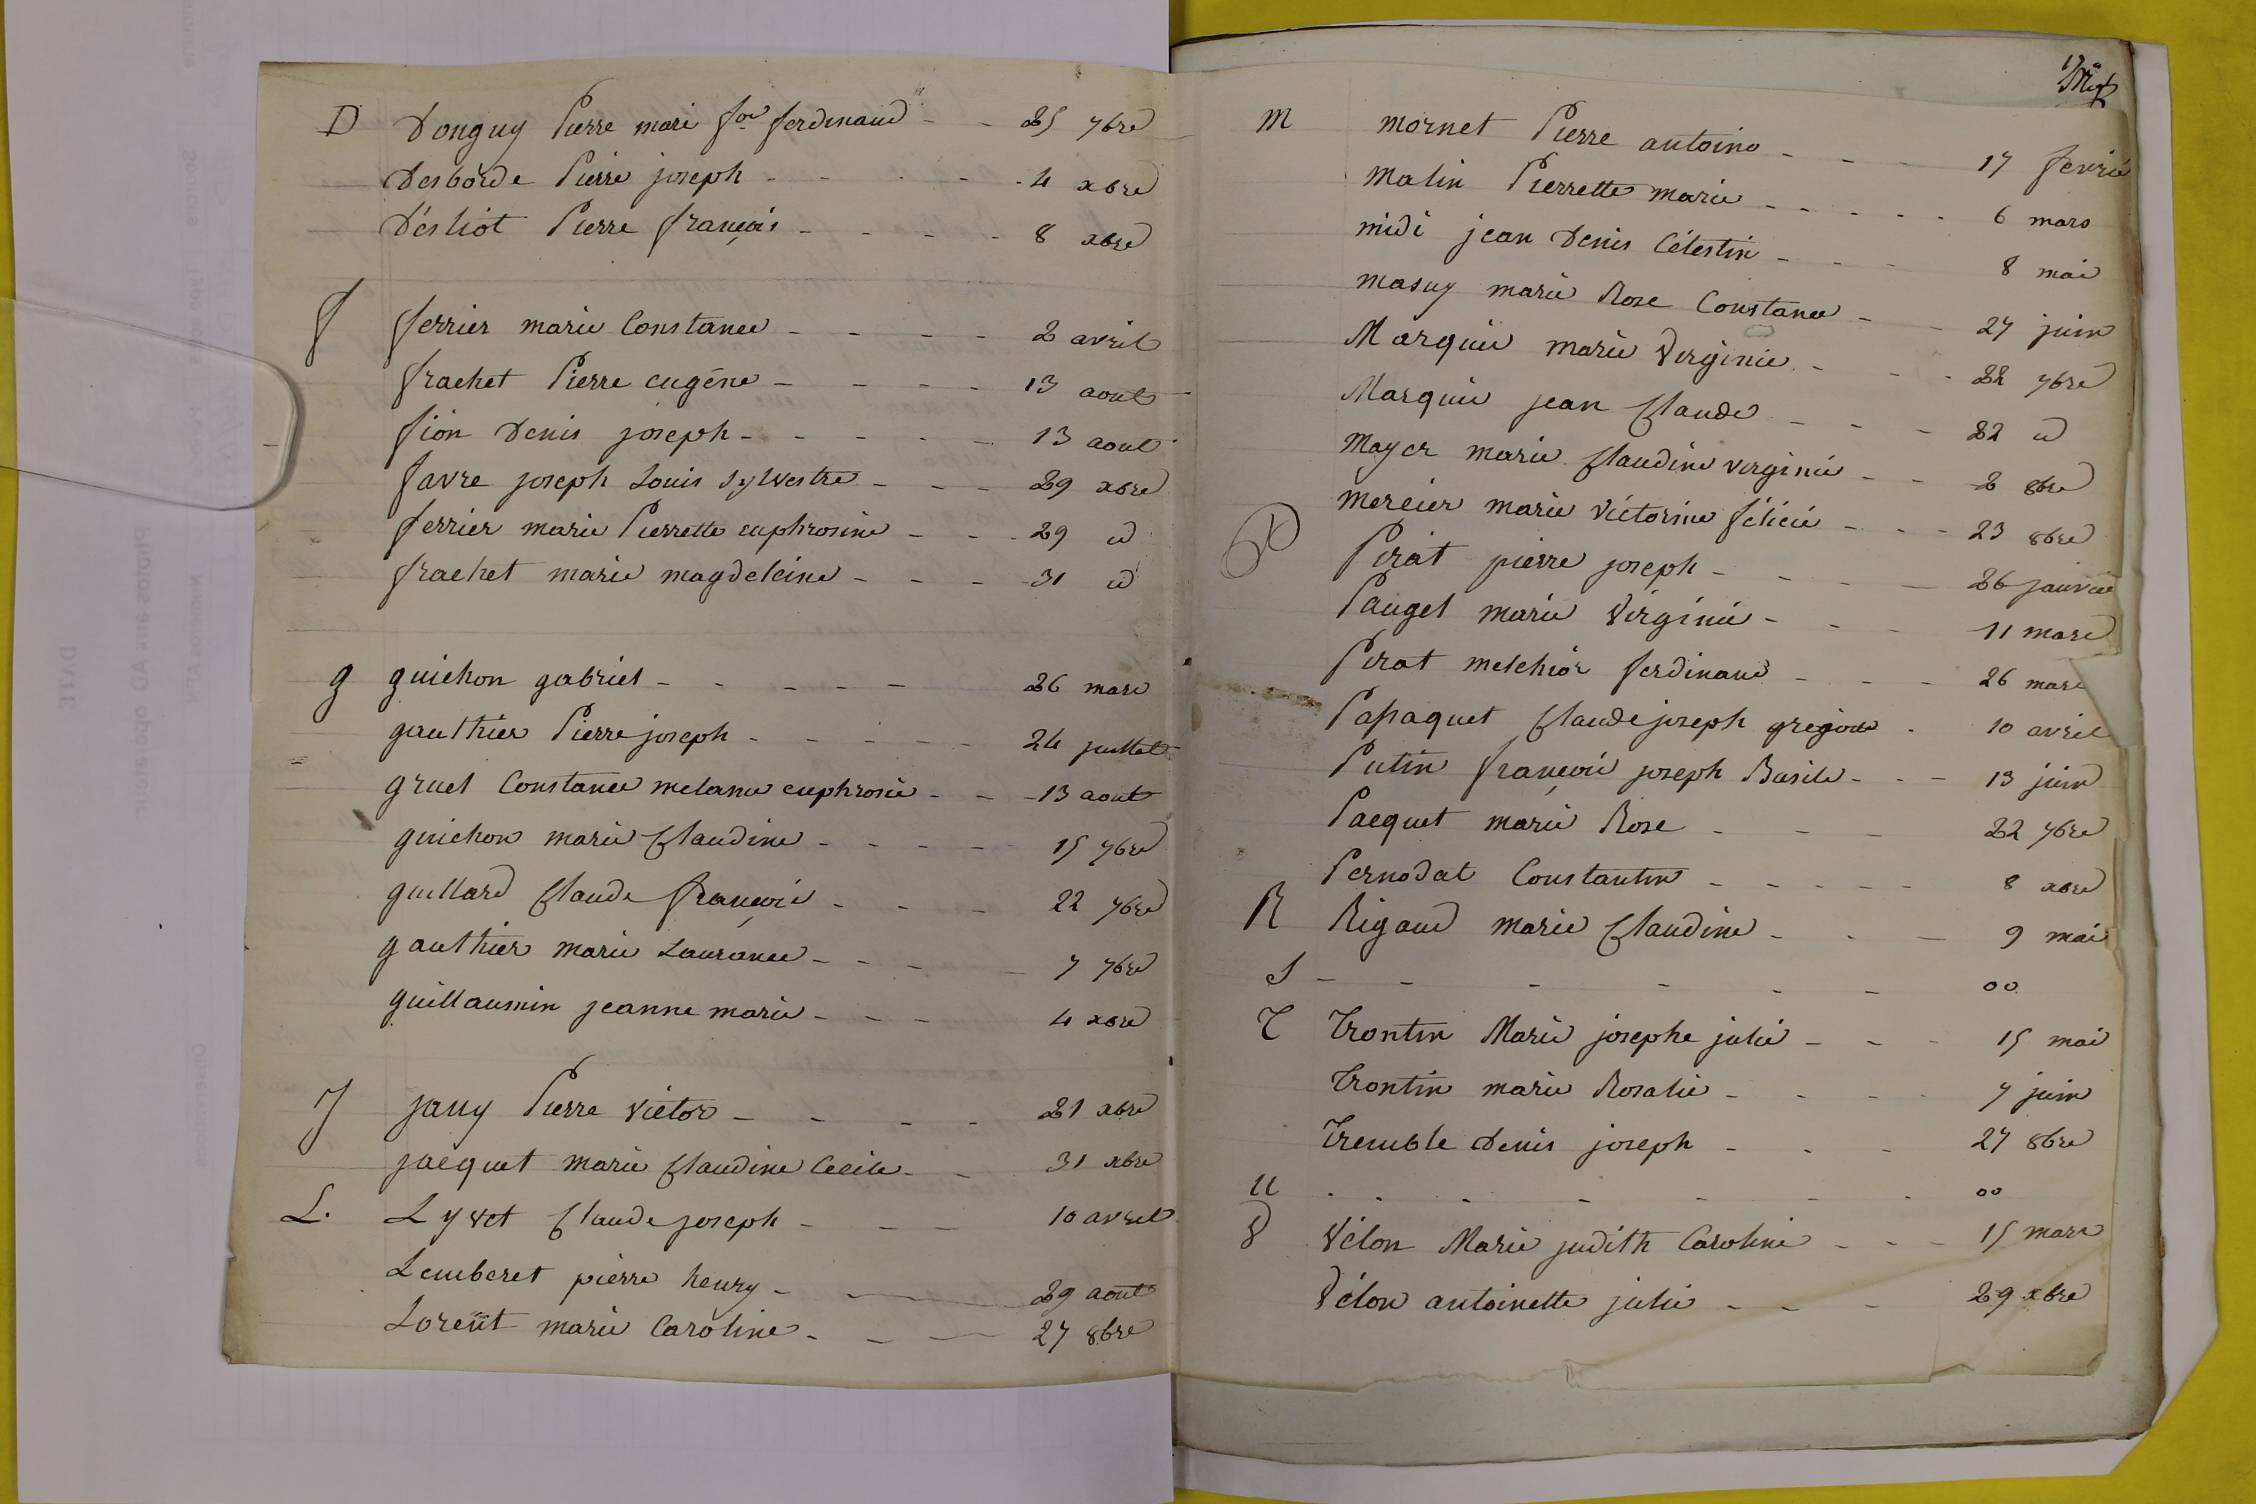 D Donguy Pierre mari fois ferdinand - - 25 7bre
Desborde Pierre joseph - - - - - 4 xbre
Désliot Pierre françois - - - - 8 xbre
f ferrier marie Constance - - - - 2 avril
frachet Pierre eugéne - - - - 13 aout
fion Denis joseph - - - - - 13 aout
favre joseph Louis sylvestre - - - 29 xbre
ferrier marie Pierrette euphrosine - - - 29 id
frachet marie magdeleine - - - - 31 id
g guichon gabriel - - - - - 26 mars
gauthier Pierre joseph - - - - - 24 juillet
gruel Constance melanie euphrosie - - - 13 aout
guichon marie Claudine - - - - - 15 7bre
guillard Claude françois - - - 22 7bre
gauthier marie Laurance - - - - 7 7bre
guillaumin jeanne marie - - - 4 xbre
J jauy Pierre victor - - - - 21 xbre
jacquet marie Claudine Cecile - - 31 xbre
L. Lyvet Claude joseph - - - 10 avril
Lemberet pierre henry - - 29 aout
Lorent marie Caroline - - - 27 8bre
M mornet Pierre antoine - - - 17 fevrier
malin Pierrette marie - - - - - 6 mars
midi jean Denis Célestin - - - 8 mai
masuy marie Rose Constance - - 27 juin
Marquis marie Virginie - - - 22 7bre
Marquis jean Claude - - - 22 id
mayer marie Claudine virginie - - 2 8bre
mercier marie victorine félicie - - - 23 8bre
P Pirat pierre joseph - - - - 26 janvier
Pauget marie Virginie - - - 11 mars
Pirat melchior ferdinand - - - 26 mars
Passaquet Claude joseph gregoire - 10 avril
Putin françois joseph Basile - - - 13 juin
Pacquet marie Rose - - - 22 7bre
Pernodat Constantin - - - - - 8 xbre
R Rigaud marie Claudine - - - 9 mai
S - - - - - - 00
T Trontin Marie josephe julie - - - 15 mai
Trontin marie Rosalie - - - - 7 juin
Tremble Denis joseph - - - 27 8bre
U - - - - - - - 00
V Vélon Marie judith Caroline - - - 15 mars
Vélon antoinette julie - - - 29 xbre